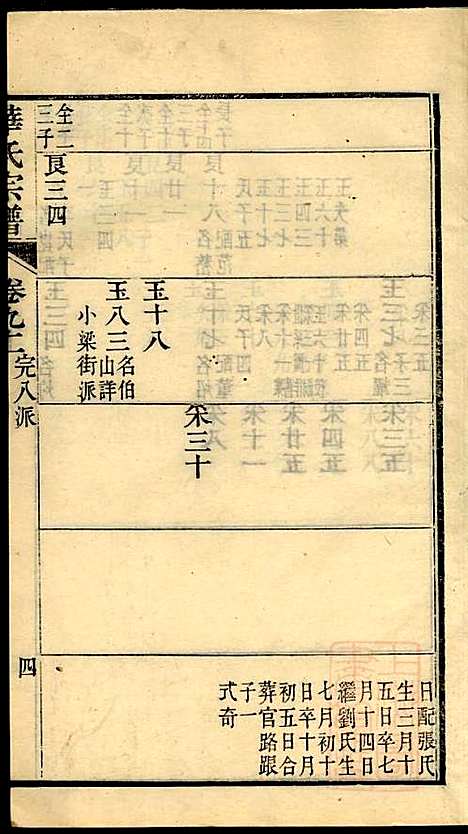 日配張氏
生三月十
五日卒七
月十四日
繼劉氏生
七月初十
日卒十月
初五日合
葬官路跟
子一
式奇
朱三十
玉十八
玉八三名伯
山詳
小梁街派
良三四
全二
三子
華氏宗譜
卷九二
完八派
四